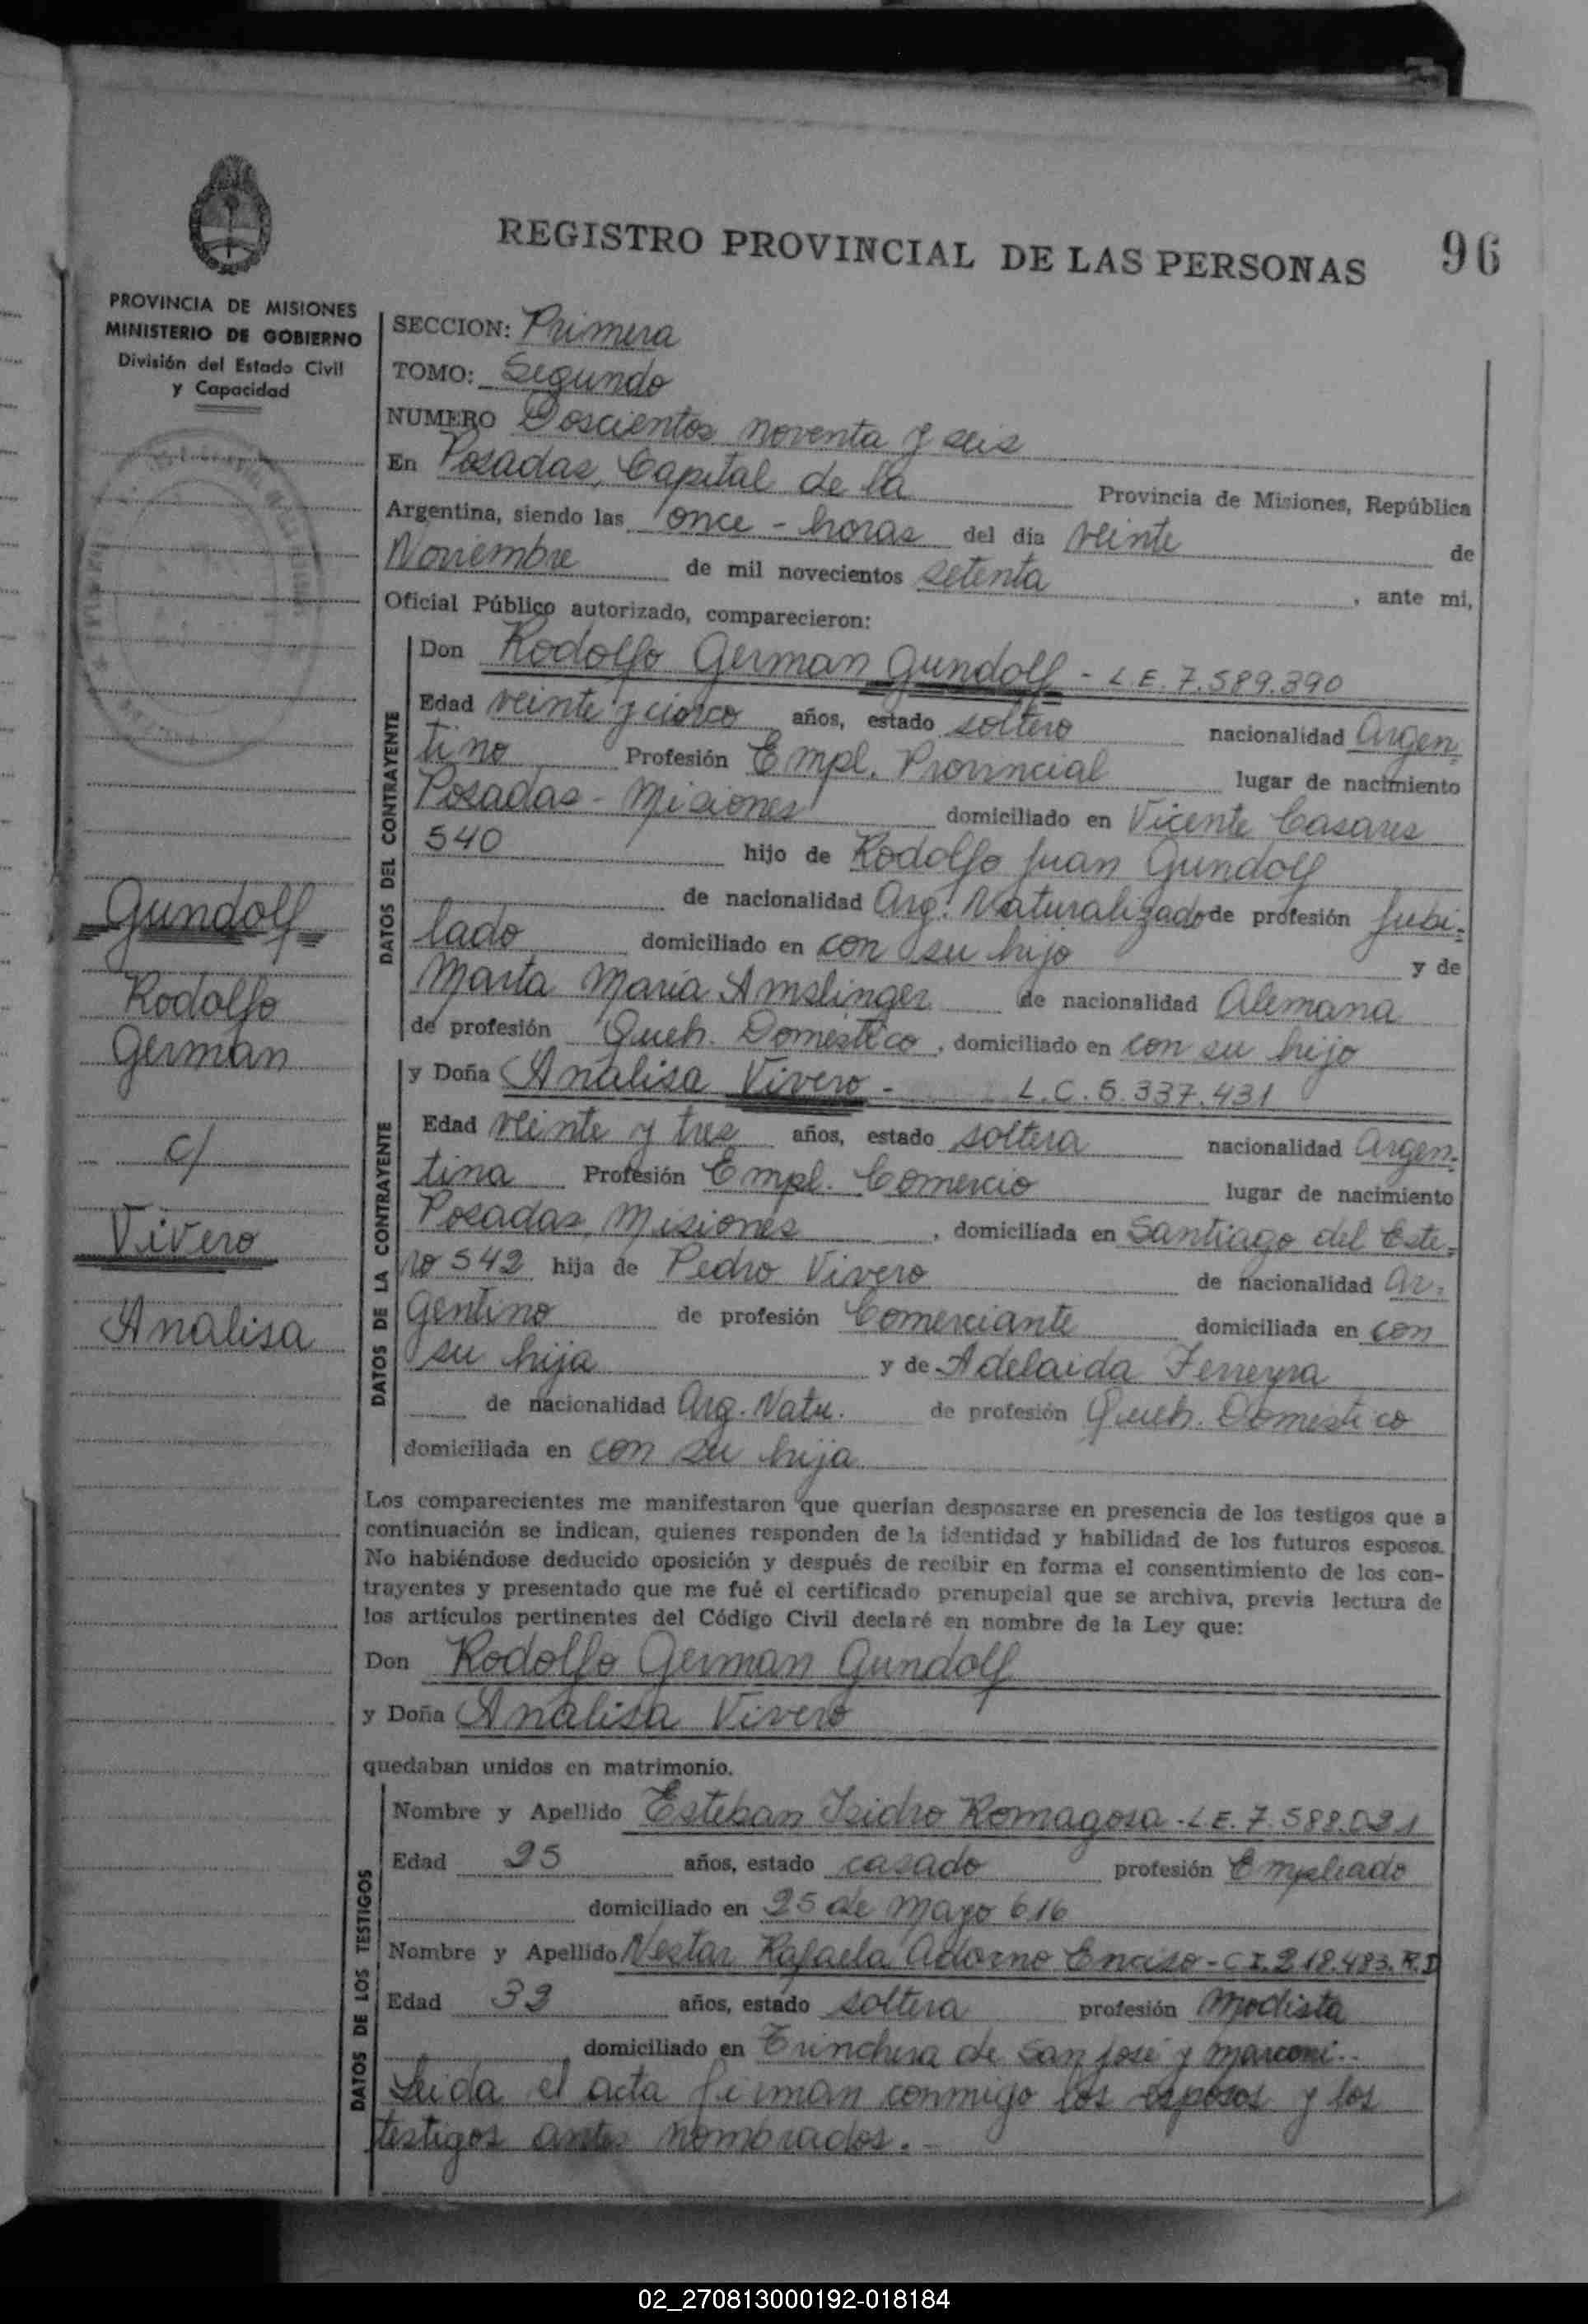 REGISTRO PROVINCIAL DE LAS PERSONAS 96
PROVINCIA DE MISIONES
MINISTERIO DE GOBIERNO
División del Estado Civil
y Capacidad
SECCION: Primera
TOMO: Segundo
NUMERO Doscientos noventa y seis
En Posadas, Capital de la Provincia de Misiones, República
Argentina, siendo las once - horas del día veinte de
Noviembre de mil novecientos setenta, ante mi,
Oficial Público autorizado, comparecieron:
DATOS DEL CONTRAYENTE
Don Rodolfo German Gundolf - L.E. 7.589.390
Edad veinte y cinco años, estado soltero nacionalidad Argen-
tino Profesión Empl. Provincial lugar de nacimiento
Posadas - Misiones domiciliado en Vicente Casares
540 hijo de Rodolfo Juan Gundolf
de nacionalidad Arg. Naturalizado de profesión Jubi-
lado domiciliado en con su hijo y de
Marta Maria Amslinger de nacionalidad Alemana
de profesión Queh. Domestico, domiciliado en con su hijo
Gundolf
Rodolfo
German
c/
Vivero
Analisa
DATOS DE LA CONTRAYENTE
y Doña Analisa Vivero - L.C. 5.337.431
Edad veinte y tres años, estado soltera nacionalidad Argen-
tina Profesión Empl. Comercio lugar de nacimiento
Posadas, Misiones, domiciliada en Santiago del Este-
ro 542 hija de Pedro Vivero de nacionalidad Ar-
gentino de profesión Comerciante domiciliada en con
su hija y de Adelaida Ferreyra
de nacionalidad Arg. Natu. de profesión Queh. Domestico
domiciliada en con su hija
Los comparecientes me manifestaron que querían desposarse en presencia de los testigos que a
continuación se indican, quienes responden de la identidad y habilidad de los futuros esposos.
No habiéndose deducido oposición y después de recibir en forma el consentimiento de los con-
trayentes y presentado que me fué el certificado prenupcial que se archiva, previa lectura de
los artículos pertinentes del Código Civil declaré en nombre de la Ley que:
Don Rodolfo German Gundolf
y Doña Analisa Vivero
quedaban unidos en matrimonio.
DATOS DE LOS TESTIGOS
Nombre y Apellido Esteban Isidro Romagosa - L.E. 7.588.021
Edad 25 años, estado casado profesión Empleado
domiciliado en 25 de Mayo 616
Nombre y Apellido Nestar Rafaela Adorno Enciso - C.I. 218.483. R.D
Edad 33 años, estado soltera profesión Modista
domiciliado en Trinchera de San José y Marconi.
Leida el acta firman conmigo los esposos y los
testigos antes nombrados. -
02_270813000192-018184